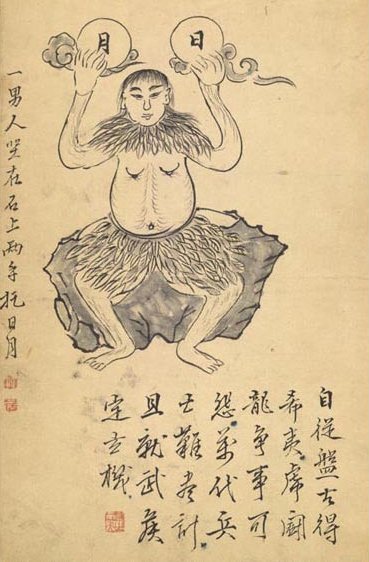 日
月
一男人坐在石上兩手托日月
自從盤古得
希夷虎鬪
龍爭事可
萬代
難盡計
且就武侯
定玄機